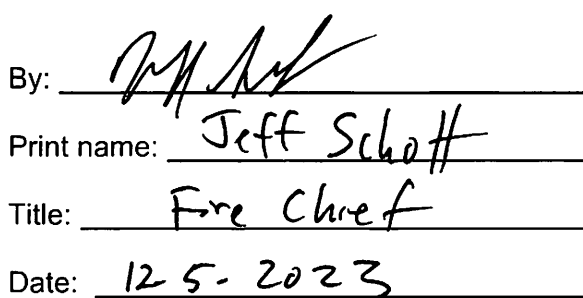 By:
Print name: Jeff Schott
Title: Fire Chief
Date: 12 5 - 2023